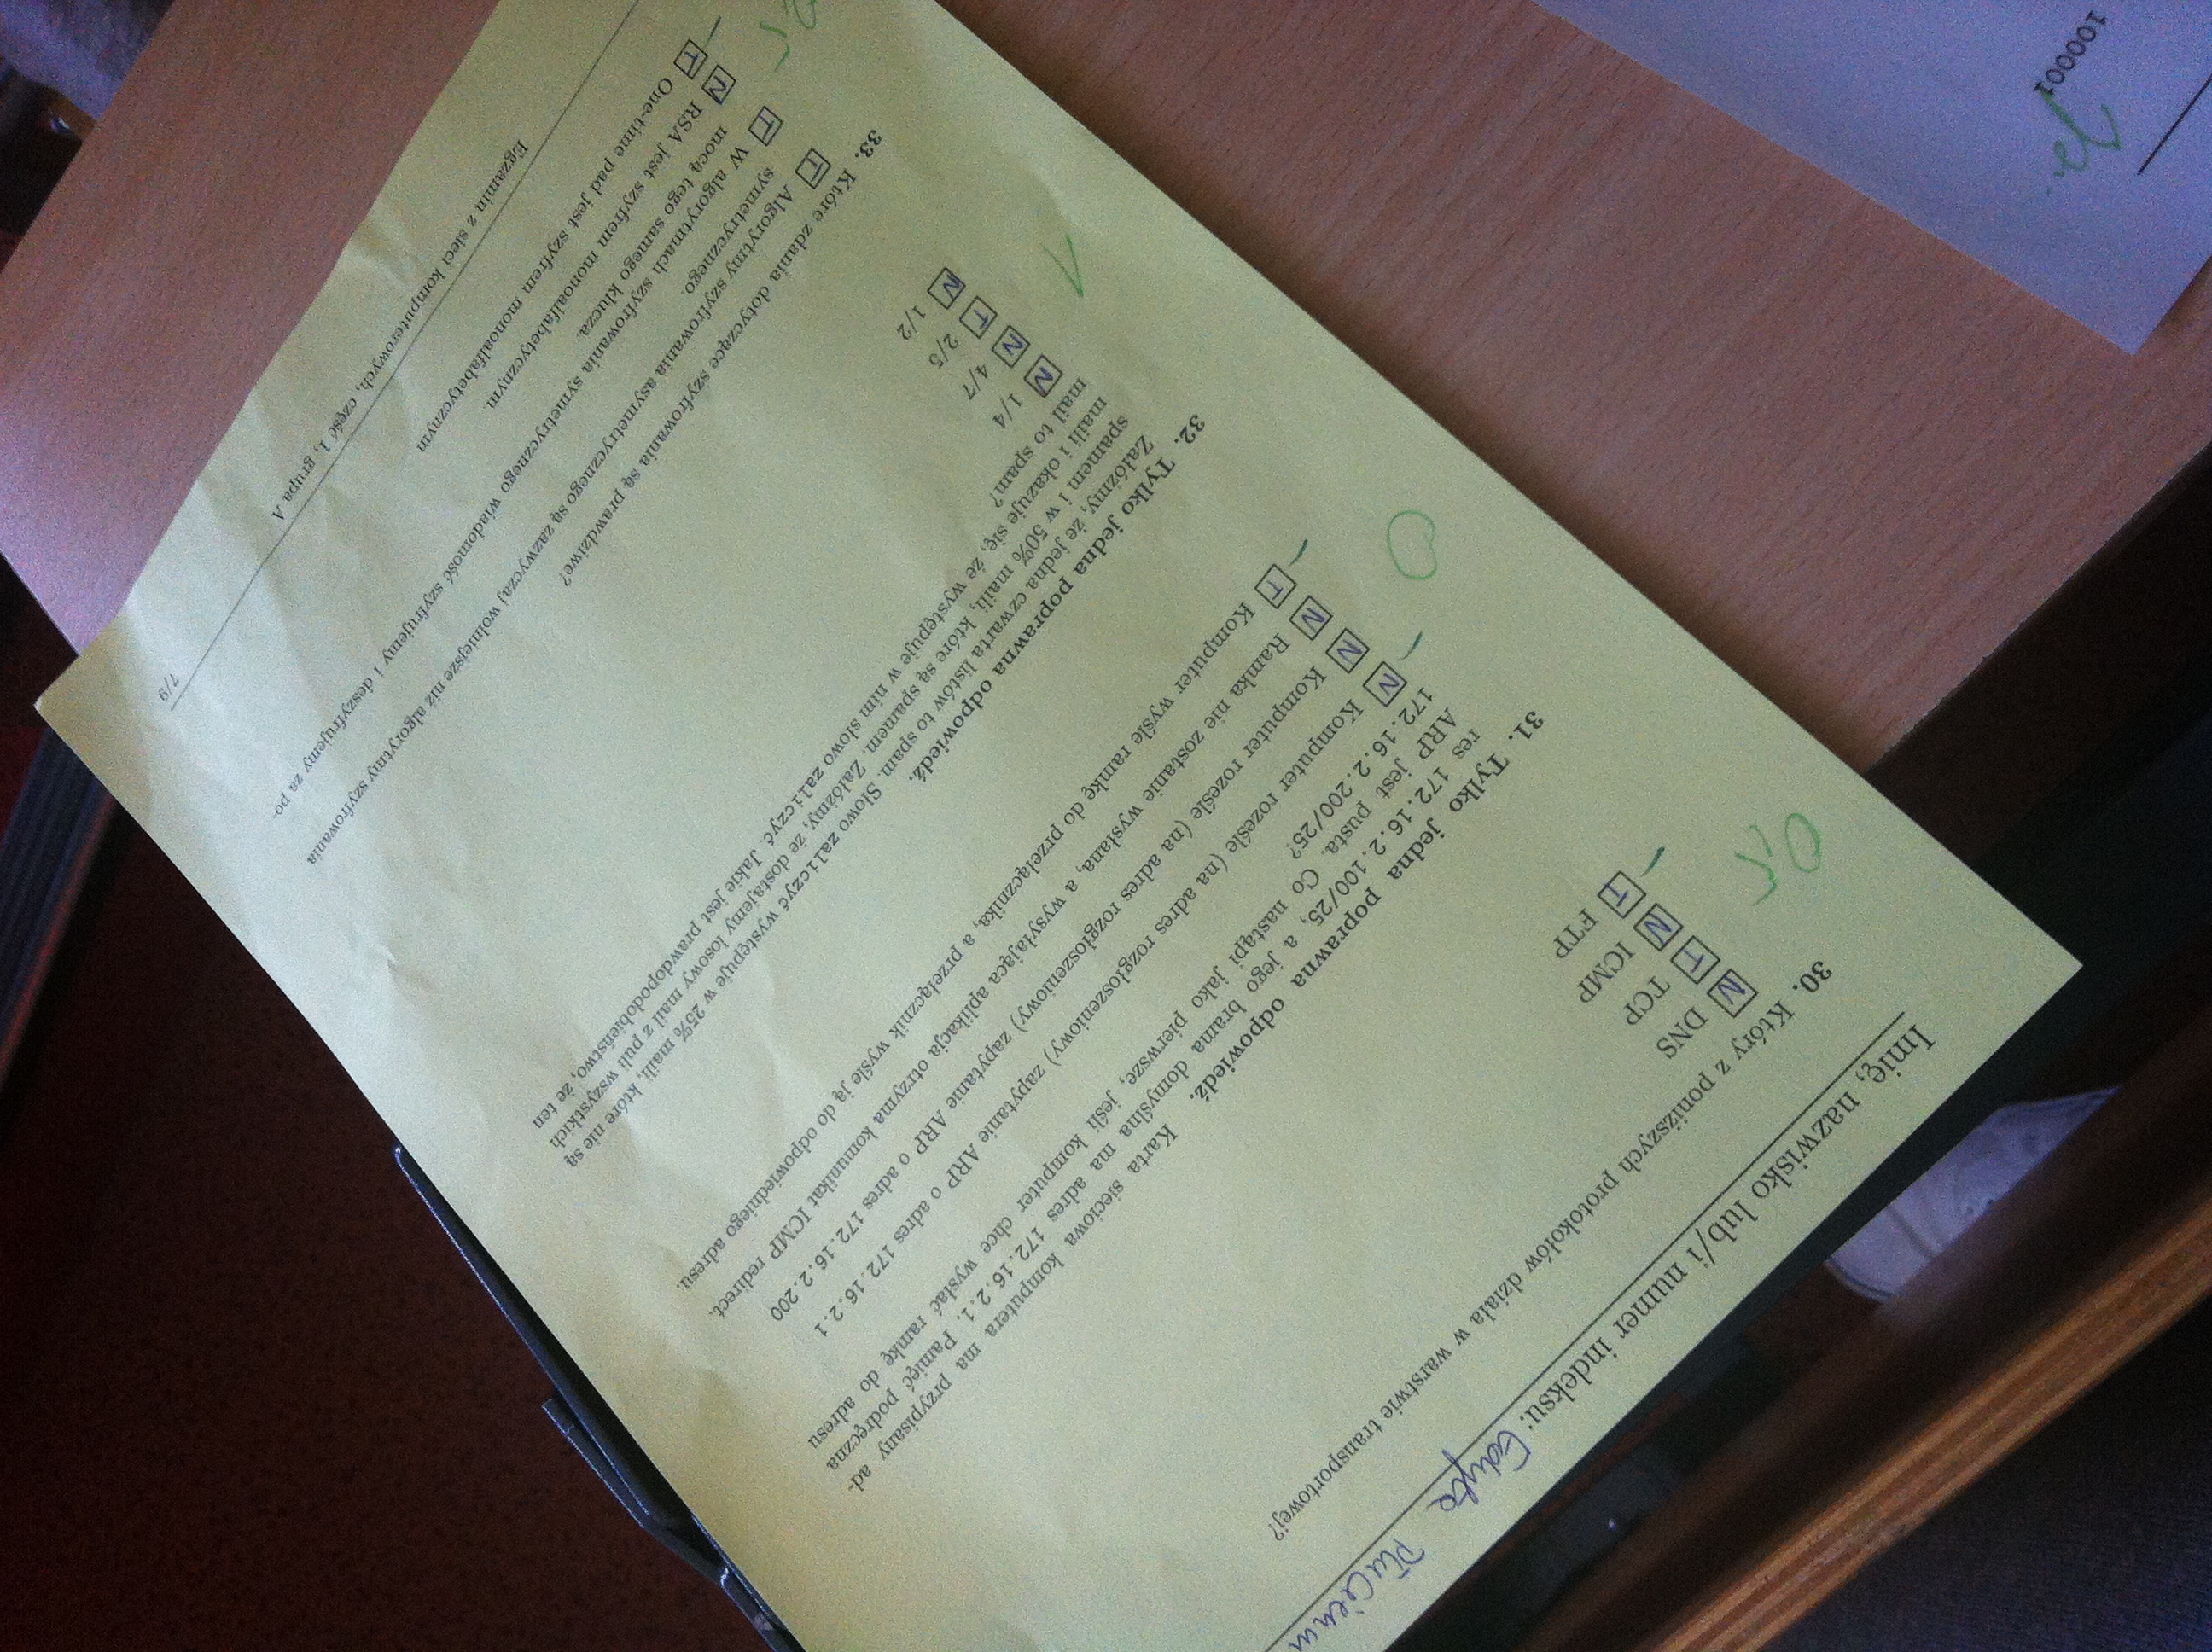 Imię, nazwisko lub/i numer indeksu: Edyta
30. Który z poniższych protokołów działa w warstwie transportowej?
N DNS
T TCP
N ICMP
T FTP
0,5
31. Tylko jedna poprawna odpowiedź. Karta sieciowa komputera ma przypisany ad-
res 172.16.2.100/25, a jego brama domyślna ma adres 172.16.2.1. Pamięć podręczna
ARP jest pusta. Co nastąpi jako pierwsze, jeśli komputer chce wysłać ramkę do adresu
172.16.2.200/25?
N Komputer roześle (na adres rozgłoszeniowy) zapytanie ARP o adres 172.16.2.1
N Komputer roześle (na adres rozgłoszeniowy) zapytanie ARP o adres 172.16.2.200
N Ramka nie zostanie wysłana, a wysyłająca aplikacja otrzyma komunikat ICMP redirect.
T Komputer wyśle ramkę do przełącznika, a przełącznik wyśle ją do odpowiedniego adresu.
0
32. Tylko jedna poprawna odpowiedź.
Załóżmy, że jedna czwarta listów to spam. Słowo zaliczyć występuje w 25% maili, które nie są
spamem i w 50% maili, które są spamem. Załóżmy, że dostajemy losowy mail z puli wszystkich
maili i okazuje się, że występuje w nim słowo zaliczyć. Jakie jest prawdopodobieństwo, że ten
mail to spam?
N 1/4
N 4/7
T 2/5
N 1/2
1
33. Które zdania dotyczące szyfrowania są prawdziwe?
T Algorytmy szyfrowania asymetrycznego są zazwyczaj wolniejsze niż algorytmy szyfrowania
symetrycznego.
T W algorytmach szyfrowania symetrycznego wiadomość szyfrujemy i deszyfrujemy za po-
mocą tego samego klucza.
N RSA jest szyfrem monoalfabetycznym.
T One-time pad jest szyfrem monoalfabetycznym
Egzamin z sieci komputerowych, część 1, grupa A
7/9
100001